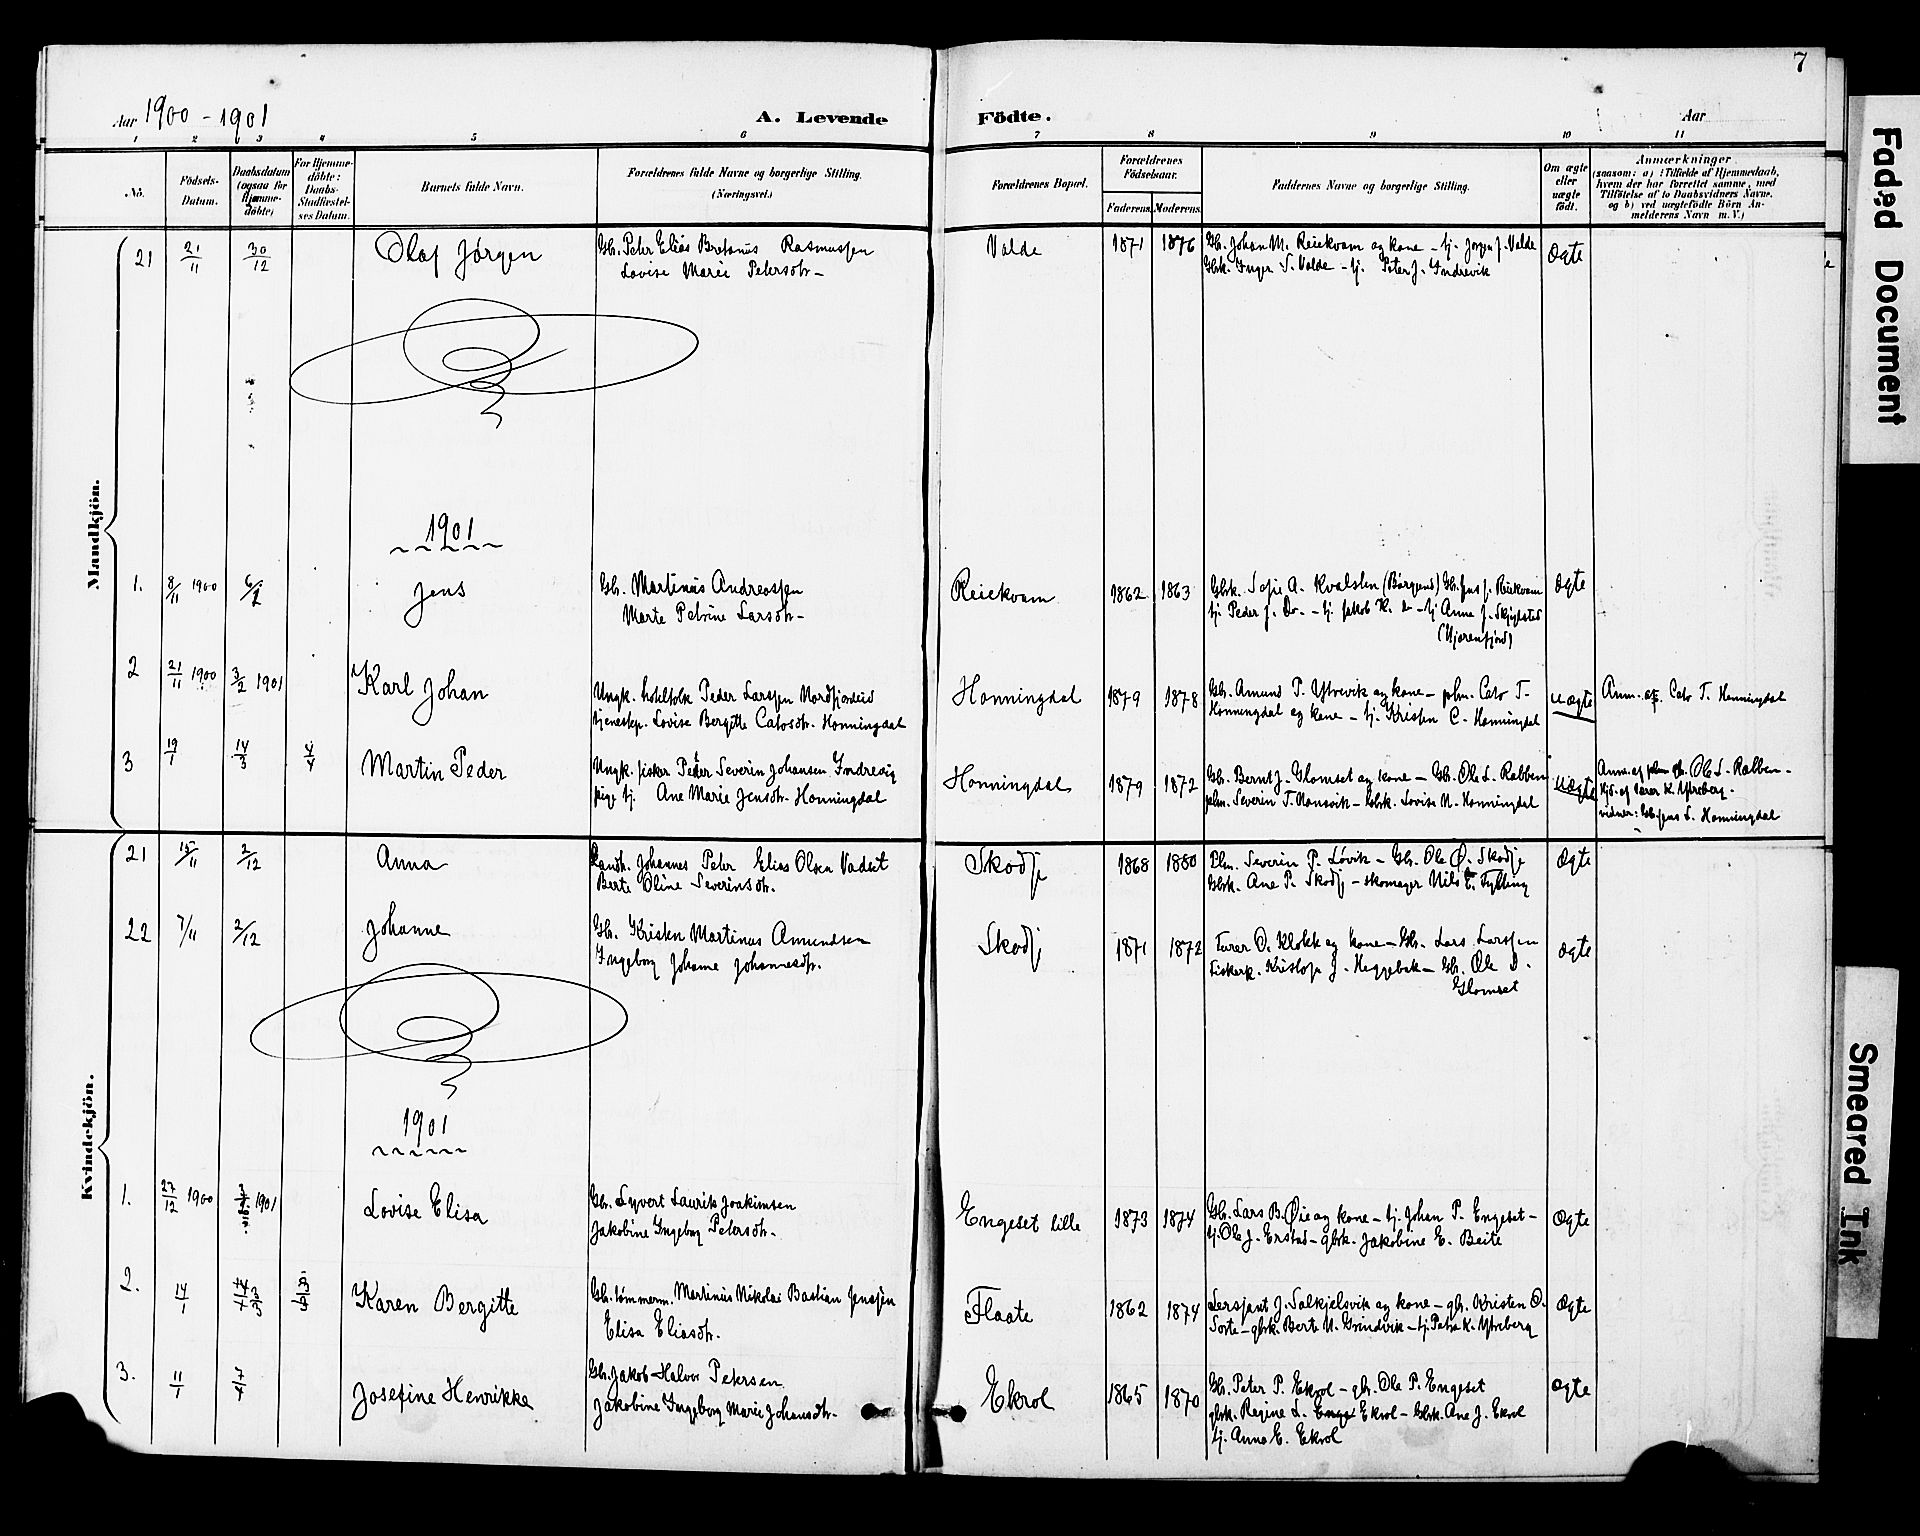 7
Aar 1900 - 1901
A. Levende Födte.
Aar
1 2 3 4 5 6 7 8 9 10 11
No.
Födsels-
Datum.
Daabsdatum
(ogsaa for
Hjemme-
döbte)
For Hjemme-
döbte:
Daabs-
Stadfæstel-
ses Datum.
Barnets fulde Navn.
Forældrenes fulde Navne og borgerlige Stilling.
(Næringsvei.)
Forældrenes Bopæl.
Forældrenes
Födselsaar.
Faderens. Moderens.
Faddernes Navne og borgerlige Stilling.
Om ægte
eller
uægte
födt.
Anmærkninger
(saasom: a) i Tilfælde af Hjemmedaab,
hvem der har forrettet samme, med
Tilföielse af to Daabsvidners Navne,
og b) ved uægtefödte Börn An-
melderens Navn m. V.)
Mandkjön.
21 21/11 30/12 Olaf Jørgen
Gbr. Peter Elias Bretanus Rasmussen
Lovise Marie Petersdtr.
Valde 1871 1876
Gbr. Johan M. Reiekvam og kone - tj. Jørgen J. Valde
Gbrk. Inger S. Valde - tj. Peter J. Indrevik
Ægte
1901
1. 8/11 1900 6/2 Jens
Gbr. Martinus Andreassen
Marte Petrine Larsdtr.
Reiekvam 1862 1863
Gbrk. Sofie A. Kvalsten (Borgund) Gbr. Jens J. Reiekvam
tj. Peder J. Do. - tj. Jakob K. do - tj Anna J. Skjylsted
(Hjørenfjord)
Ægte
2 21/11 1900 3/2 1901 Karl Johan
Ungk. hotelfolk Peder Larssen Nordfjordeid
tjenestep. Lovise Bergitte Catosdtr. Honningdal
Honningdal 1879 1878
Gbr. Amund P. Ytrevik og kone - plm. Cato T.
Honningdal og kone - tj. Kristen C. Honningdal
Uægte
Anm. af. Cato T. Honningdal
3 19/1 14/3 4/4 Martin Peder
Ungk. fisker Peder Severin Johansen Indrevig
pige tj. Ane Marie Jensdtr. Honningdal
Honningdal 1879 1872
Gbr. Bernt J. Glomset og kone - Gbr. Ole L. Rabben
plm. Severin T. - Gbrk. Lovise N. Honningdal
Uægte
Anm. af Ole L. Rabben.
Hjd. af lærer K. Ytreberg.
vidner: Gbr. Jens L. Honningdal
Kvindekjön.
21 15/11 2/12 Anna
Landh. Johannes Peter Elias Olsen Vadset
Berte Oline Severinsdtr.
Skodje 1868 1880
Plm. Severin P. Løvik - Gbr. Ole Ø. Skodje
Gbrk. Ane P. Skodje - skomager Nils E. Fylling
Ægte
22 7/11 2/12 Johanne
Gbr. Kristen Martinus Amundsen
Ingeborg Johanne Johannesdtr.
Skodje 1871 1872
Furer O. Klokk og kone - Gbr. Lars Larssen
Fiskerk. Kristofa J. Heggebak - Gbr. Ole D.
Glomset
Ægte
1901
1. 27/12 1900 1901 Lovise Elisa
Gbr. Syvert Laurits Joakimsen
Jakobine Ingeborg Petersdtr.
Engeset lille 1873 1874
Gbr. Lars B. Øie og kone - tj. Johan P. Engeset -
tj. Ole J. Erstad - gbrk. Jakobine E. Beite
Ægte
2. 14/1 Karen Bergitte
Gbr. tømmerm. Martinus Nikolai Bastian Jenssen
Elisa Eliasdtr.
Flaate 1862 1874
Sersjant J. Solkjelsvik og kone - gbr. Kristen O.
Sorte - gbrk. Berte N. Grindvik - tj. Petra K. Ytreberg
Ægte
3. 11/1 7/4 Josefine Henrikke
Gbr. Jakob Halvor Petersen
Jakobine Ingeborg Marie Johansdtr.
Ekrol 1865 1870
Gbr. Peter P. Ekrol - gbr. Ole P. Engeset
gbrk. Regine L. Ekrol - Gbrk. Ane J. Ekrol
tj. Anna E. Ekrol
Ægte
Faded Document
Smeared Ink